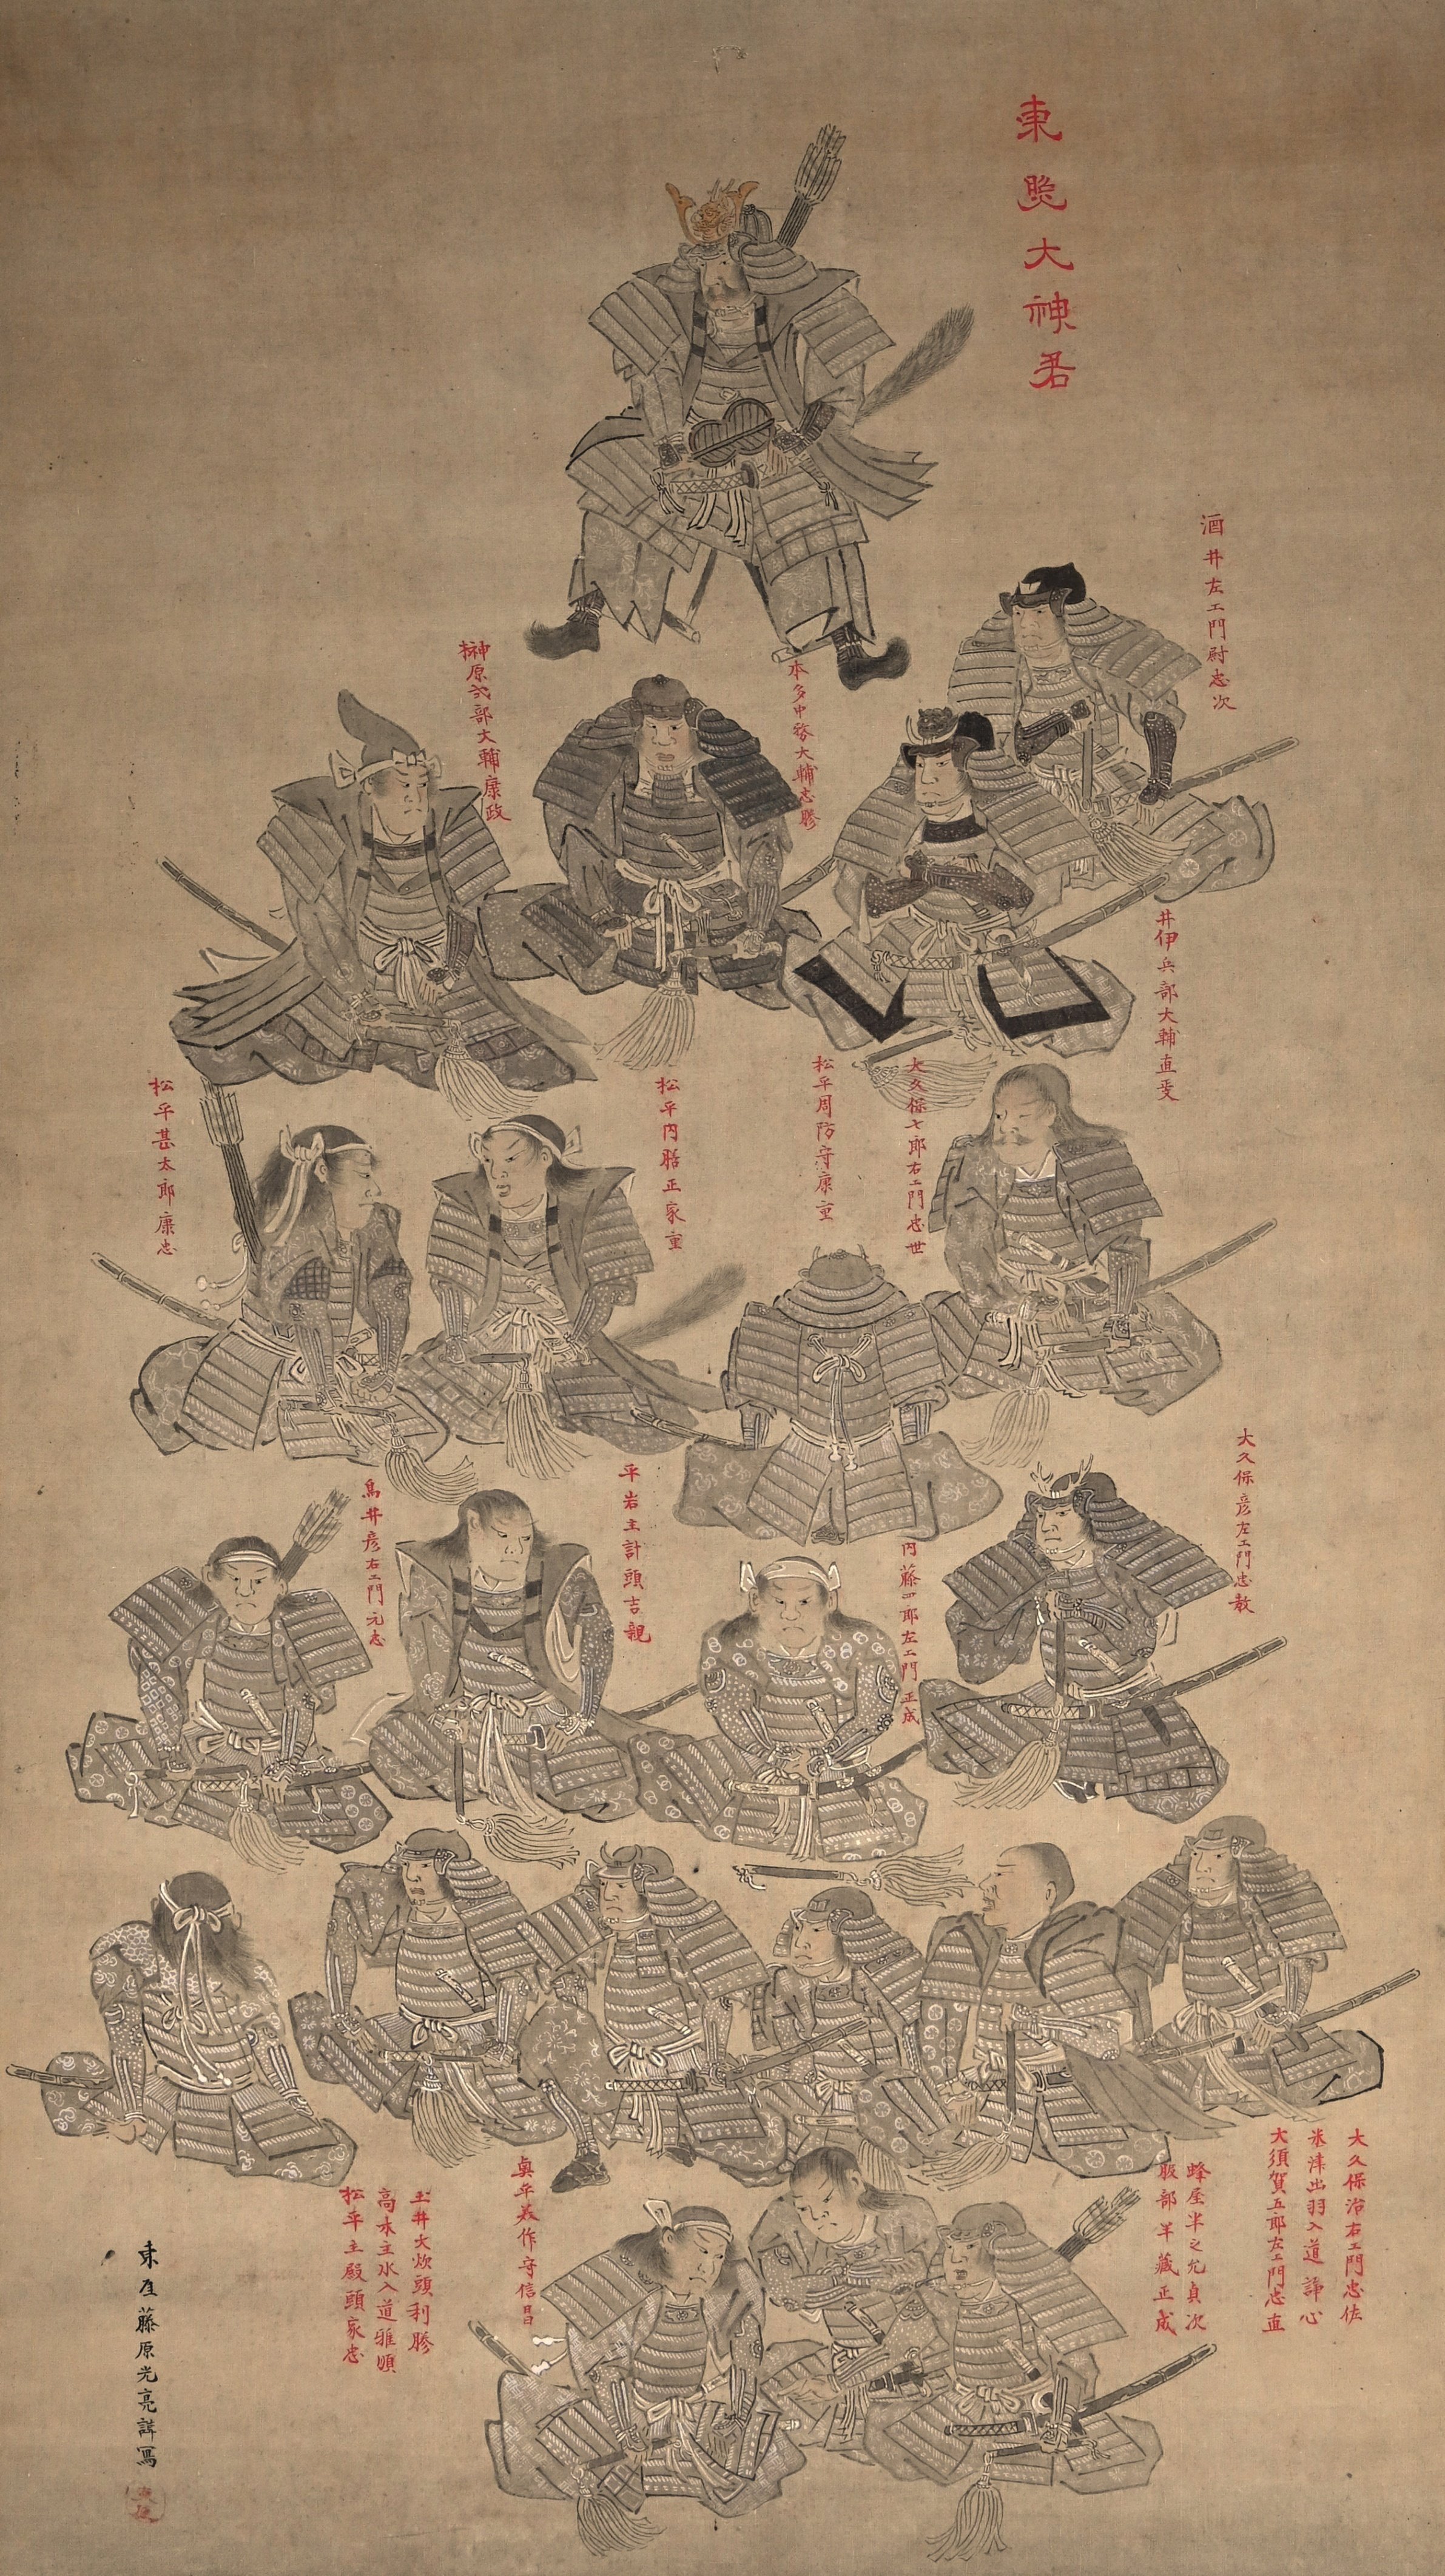 東照大神君
酒井左エ門尉忠次
本多中務大輔忠勝
榊原式部大輔康政
井伊兵部大輔直政
大久保七郎右エ門忠世
松平周防守康重
松平内膳正家重
松平甚太郎康忠
大久保彦左エ門忠教
内藤四郎左エ門正成
平岩主計頭吉親
鳥井彦右エ門元忠
大久保治右エ門忠佐
米津出羽入道諦心
大須賀五郎左エ門忠直
蜂屋半之允貞次
服部半藏正成
奥平美作守信昌
土井大炊頭利勝
高木主水入道雅順
松平主殿頭家忠
藤原光亮謹寫